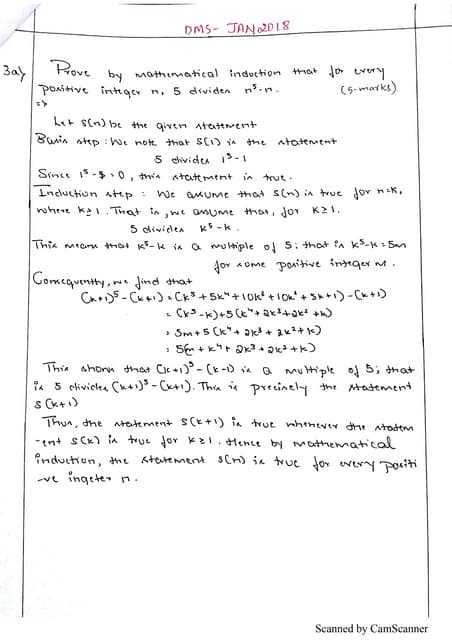 DMS- JAN2018
3a) Prove by mathematical induction that for every
positive integer n, 5 divides n⁵-n. (5-marks)
=>
Let S(n) be the given statement
Basis step : We note that S(1) is the statement
5 divides 1⁵-1
Since 1⁵-$=0, this statement is true.
Induction step : We assume that S(n) is true for n=k,
where k≥1. That is, we assume that, for k≥1.
5 divides k⁵-k.
This means that k⁵-k is a multiple of 5; that is k⁵-k=5m
for some positive integer m.
Consequently, we find that
(k+1)⁵-(k+1)=(k⁵+5k⁴+10k³+10k²+5k+1)-(k+1)
= (k⁵-k)+5(k⁴+2k³+2k²+k)
= 5m+5(k⁴+2k³+2k²+k)
= 5(m+k⁴+2k³+2k²+k)
This shows that (k+1)⁵-(k-1) is a multiple of 5; that
is 5 divides (k+1)⁵-(k+1). This is precisely the statement
S(k+1)
Thus, the statement S(k+1) is true whenever the statem
-ent S(k) is true for k≥1. Hence by mathematical
induction, the statement S(n) is true for every positi
-ve ingeter n.
Scanned by CamScanner